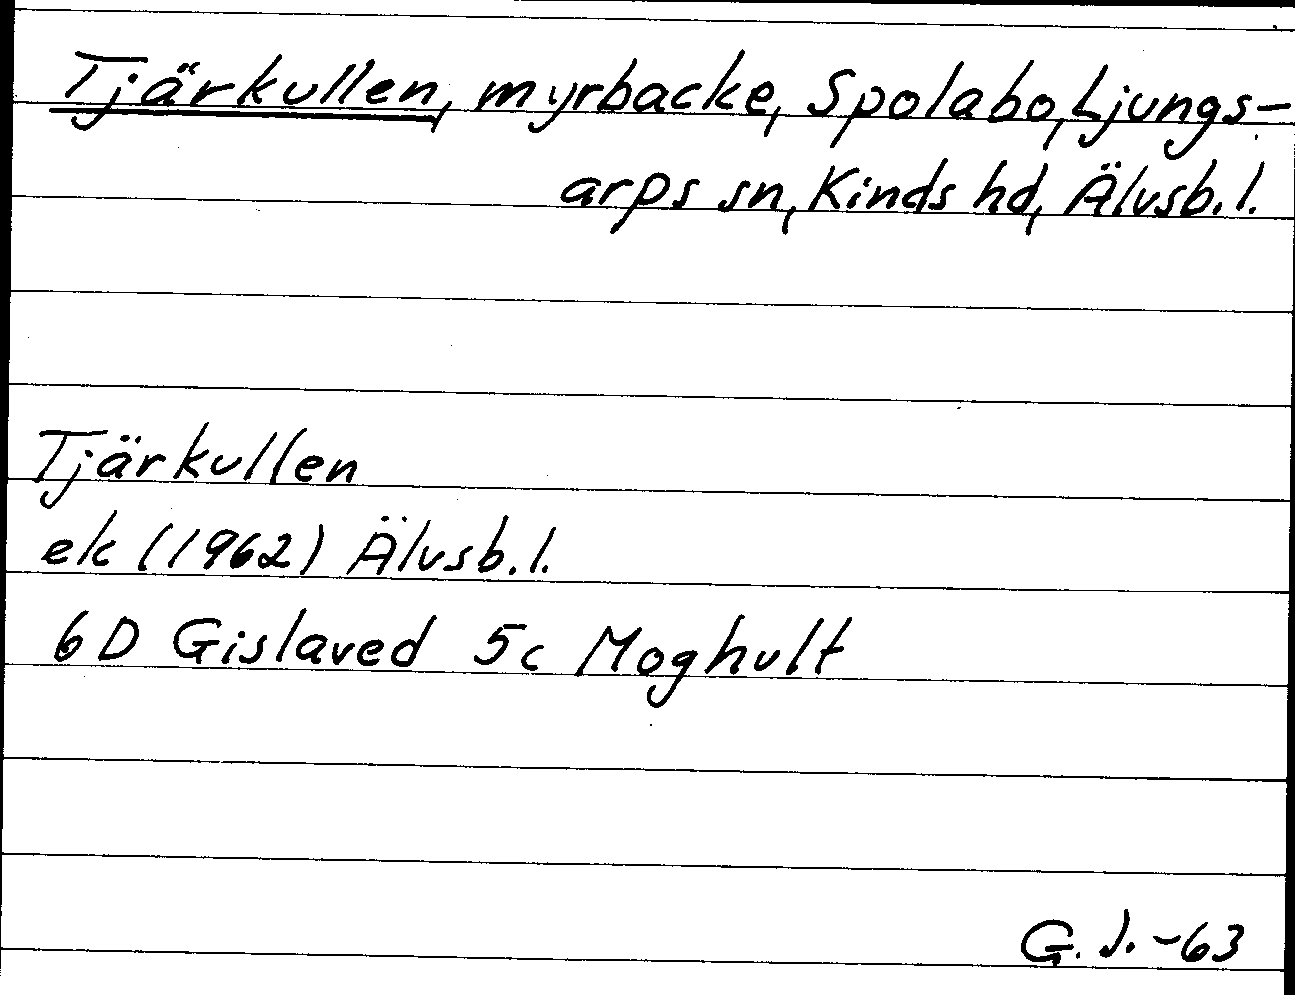 Tjärkullen, myrbacke, Spolabo, Ljungs-
arps sn, Kinds hd, Älvsb. l.
Tjärkullen
ek (1962) Älvsb. l.
6D Gislaved 5c Moghult
G. J. -63